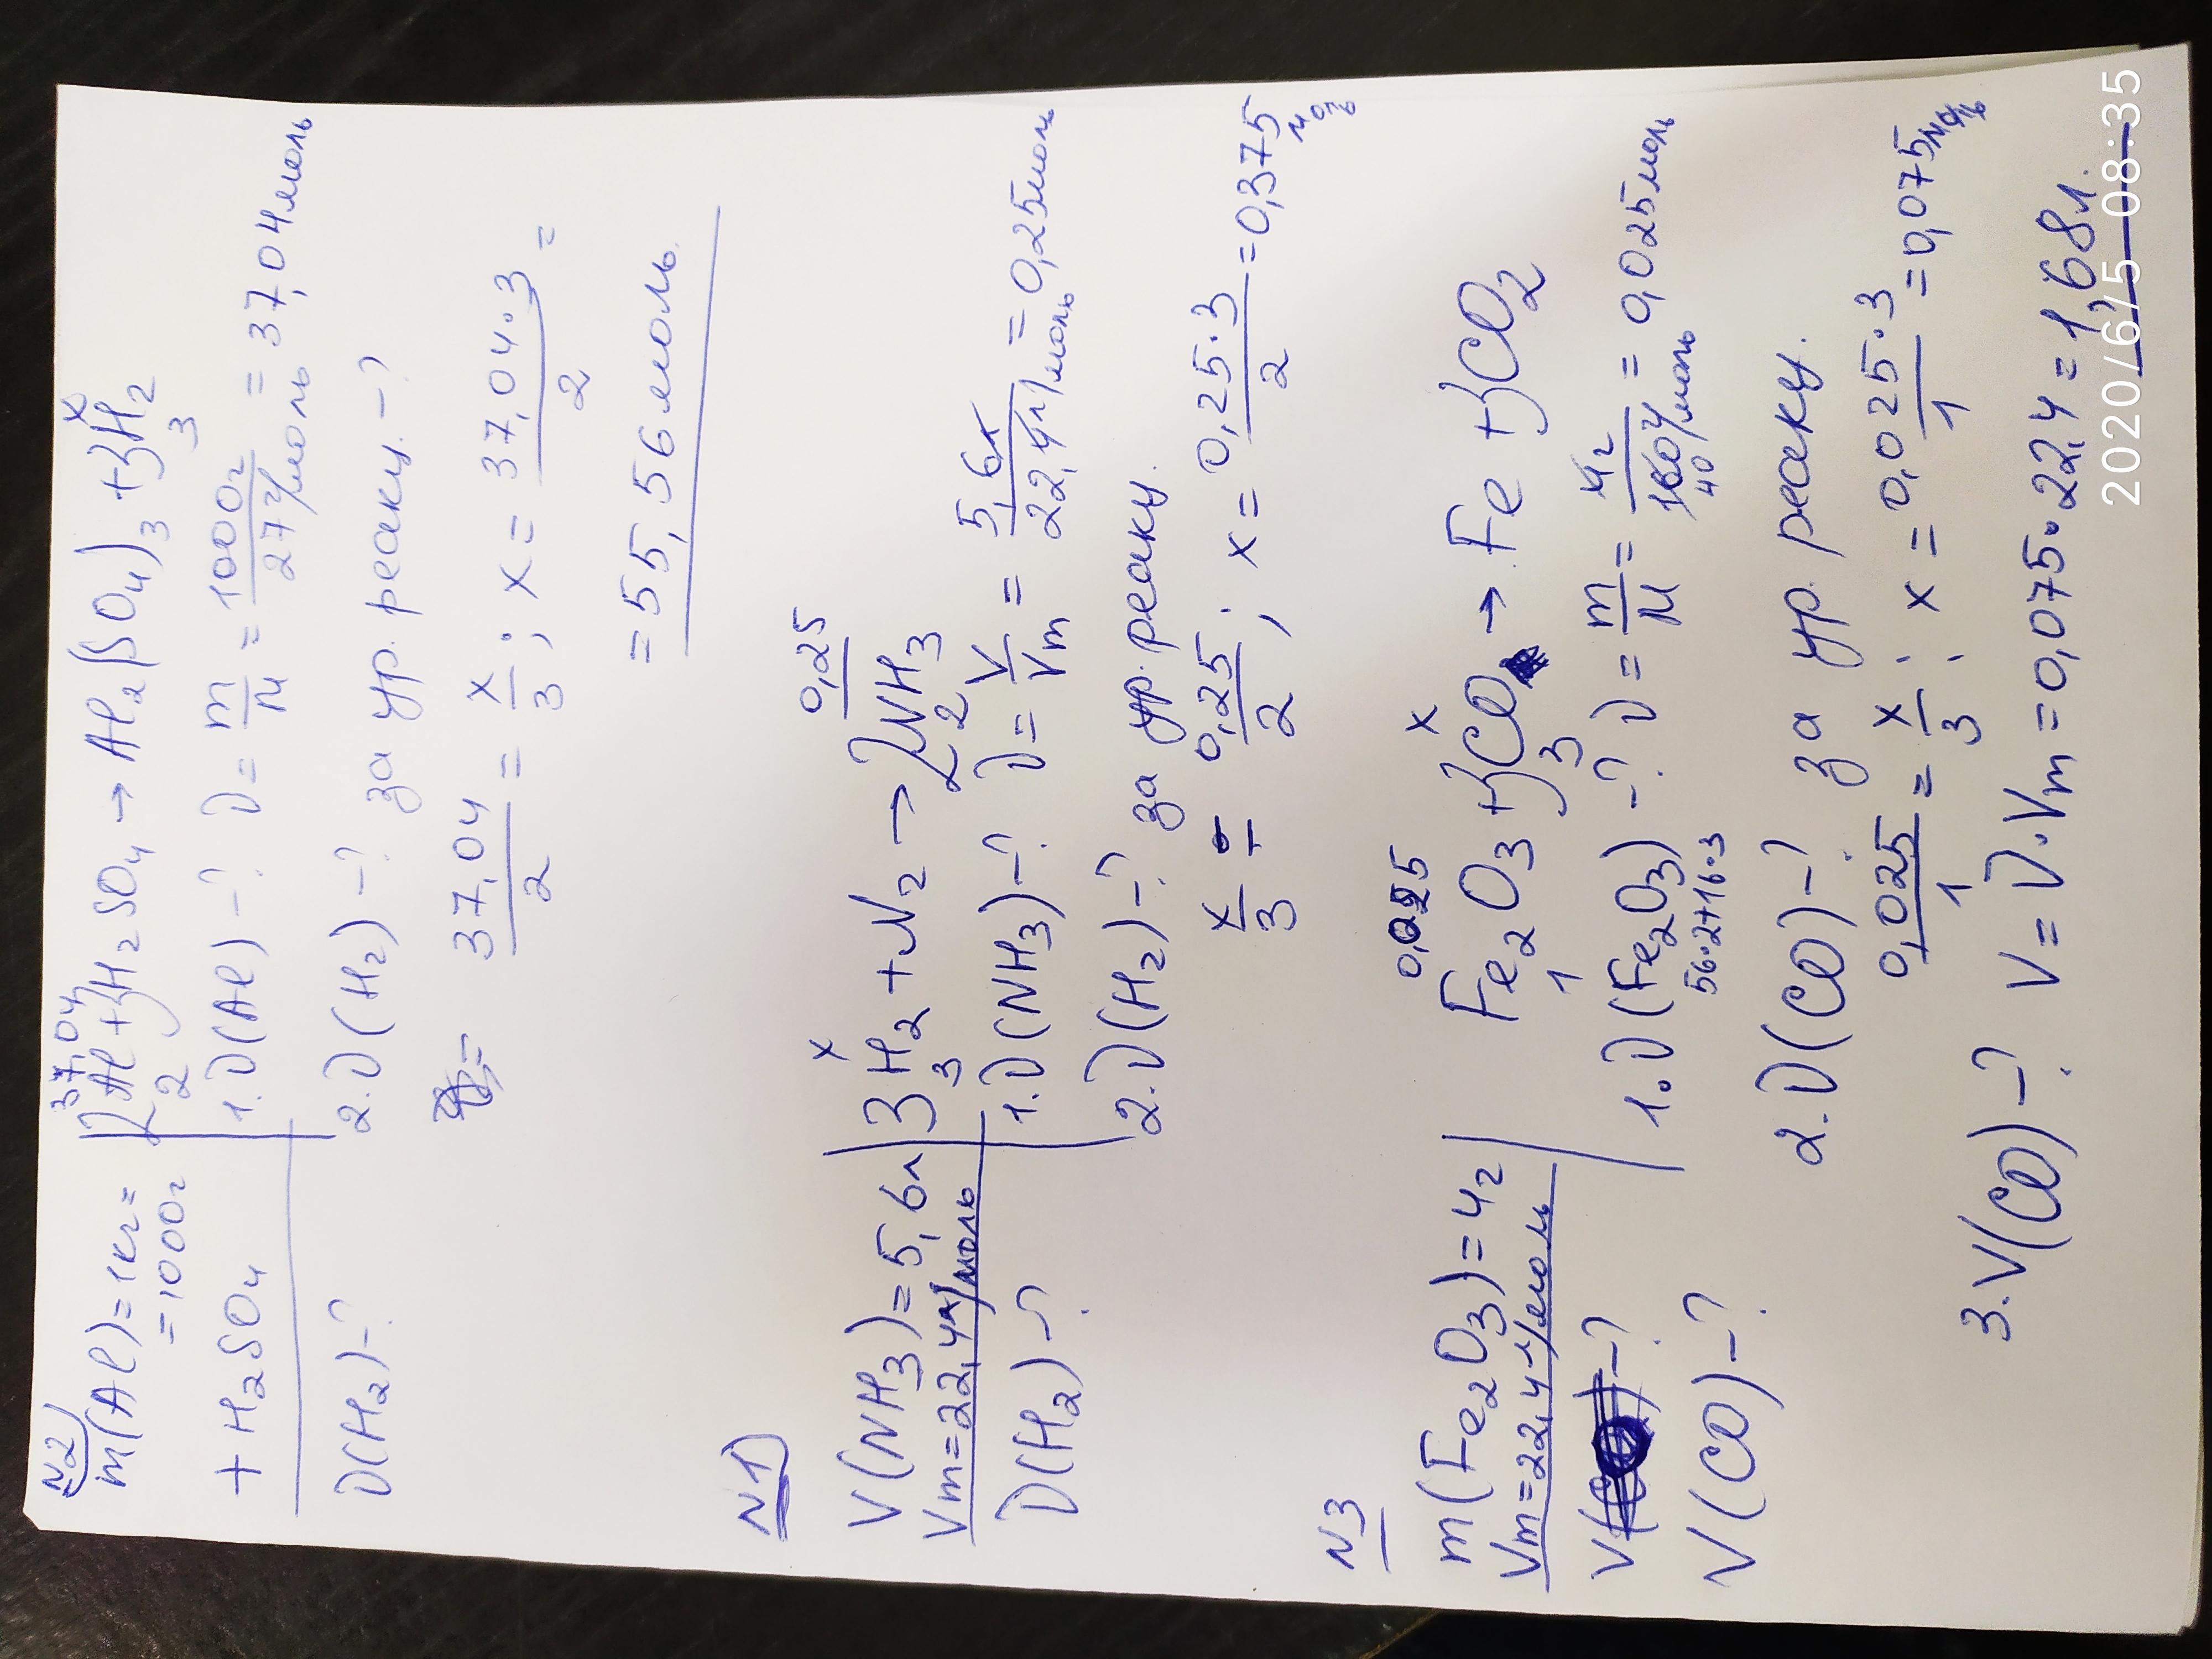 N2
m(Al)=1кг=
=1000г
+ H2SO4
D(H2)-?
37,04 x
2Al+3H2SO4→Al2(SO4)3+3H2
2 3
1.D(Al)-? D=m/M=1000г/27г/моль=37,04моль
2.D(H2)-? за ур. реакц.-?
37,04/2=x/3; x=37,04·3/2=
=55,56моль.
N1
V(NH3)=5,6л
Vm=22,4л/моль
D(H2)-?
x 0,25
3H2+N2→2NH3
3 2
1.D(NH3)-? D=V/Vm=5,6л/22,4л/моль=0,25моль
2.D(H2)-? за ур. реакц.
x/3=0,25/2; x=0,25·3/2=0,375 моль
N3
m(Fe2O3)=4г
Vm=22,4л/моль
V(CO)-?
0,025 x
Fe2O3+3CO→Fe+3CO2
1 3
1.D(Fe2O3)-? D=m/M=4г/160г/моль=0,025моль
56·2+16·3 40
2.D(CO)-? за ур. реакц.
0,025/1=x/3; x=0,025·3/1=0,075моль
3.V(CO)-? V=D·Vm=0,075·22,4=1,68л.
2020/6/5 08:35